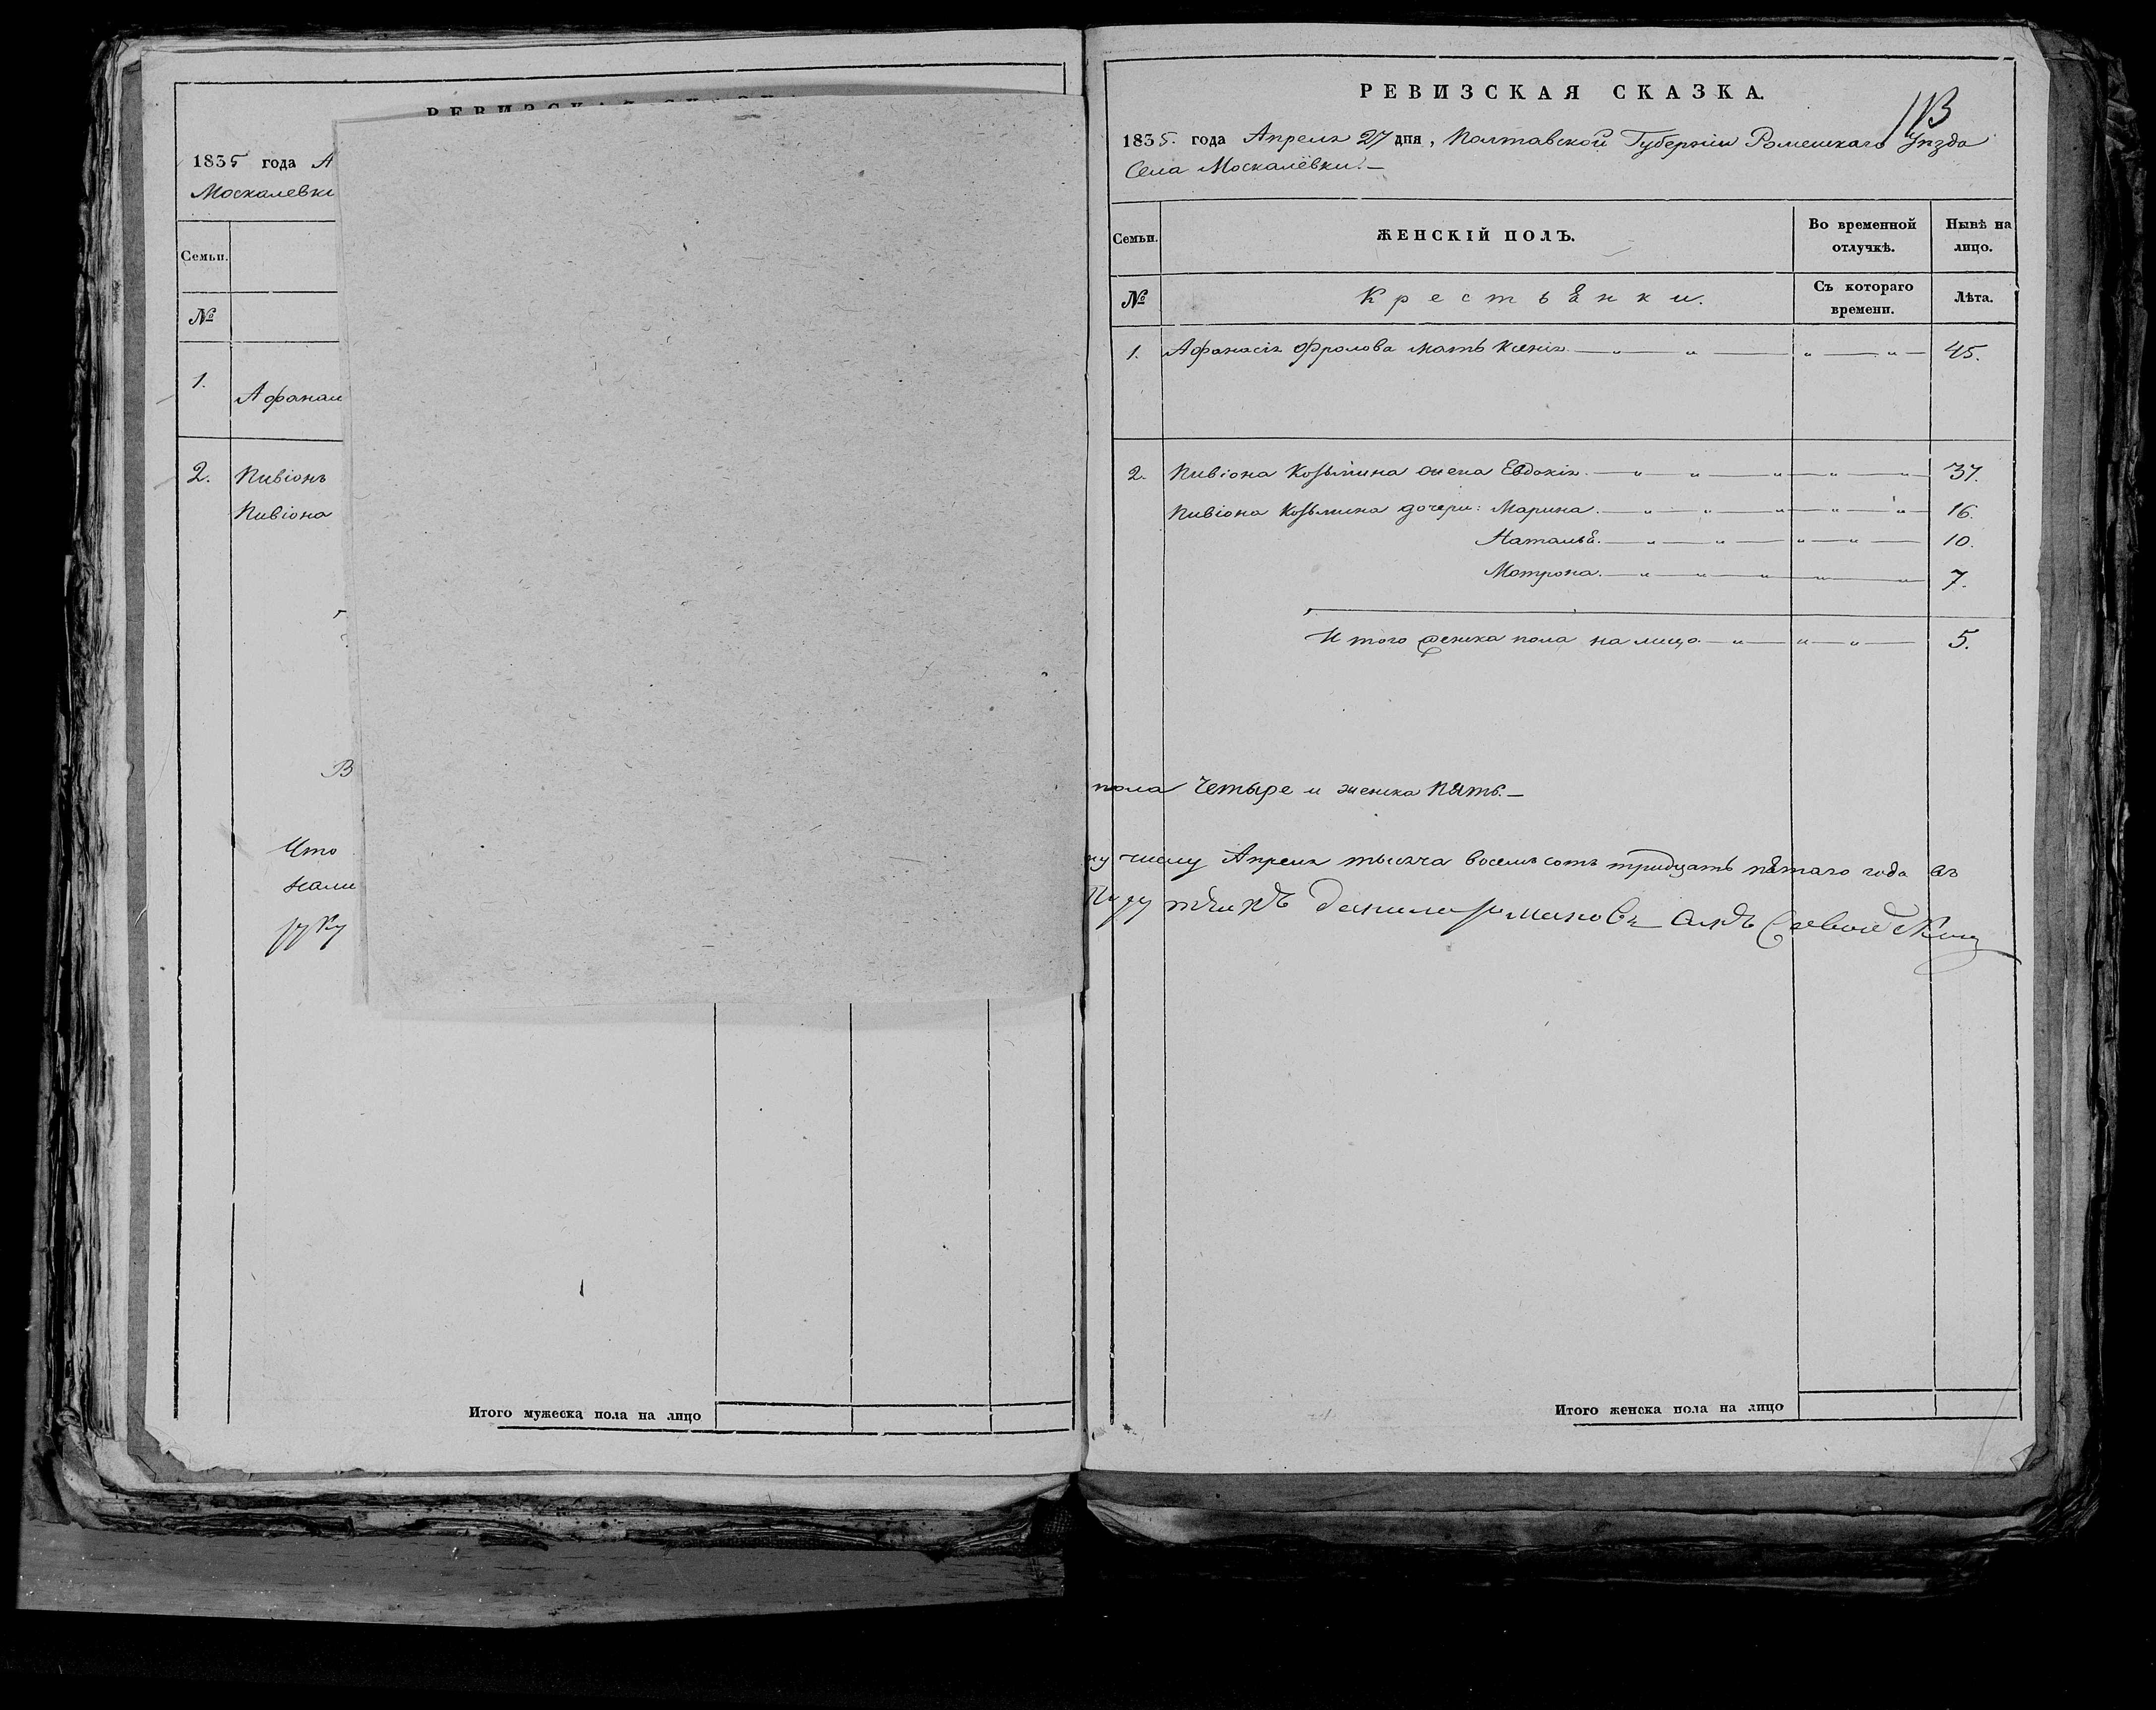 1835 года А
Москалевки
Семьи.
№
1.
Афанаси
2. Пивіонъ
Пивіона
В
Что
руку
Итого мужеска пола на лицо
РЕВИЗСКАЯ СКАЗКА.
1835. года Апреля 27 дня, Полтавской Губерніи Роменскаго Уѣзда
Села Москалевки.—
Семьи. ЖЕНСКІЙ ПОЛЪ. Во временной отлучкѣ. Нынѣ на лицо.
№ Крестьянки. Съ котораго времени. Лѣта.
1. Афанасія Фролова мать Ксенія 45.
2. Пивіона Козьмина жена Евдокія 37.
Пивіона Козьмина дочери: Марина 16.
Наталья 10.
Мотрона 7.
Итого женска пола на лицо 5.
пола четыре и женска пять.—
числу Апреля тысяча восемь сотъ тридцать пятаго года въ
Итого женска пола на лицо